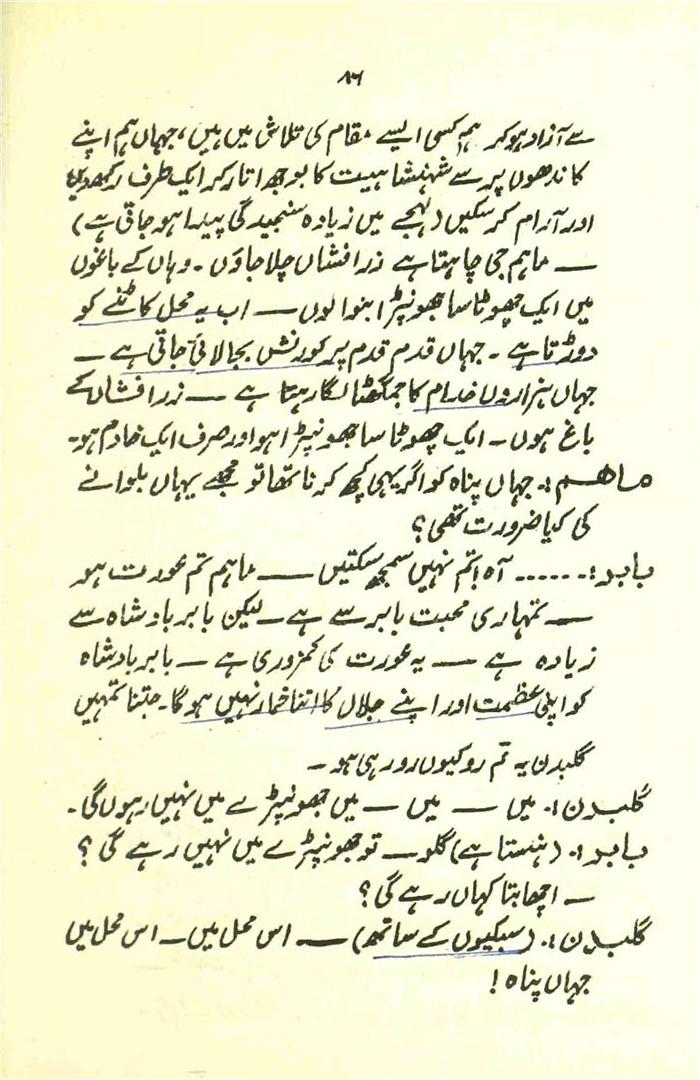 ۸۶
سے آزاد ہو کر ہم کسی ایسے مقام کی تلاش میں ہیں، جہاں ہم اپنے
کاندھوں پر سے شہنشاہیت کا بوجھ اتار کر ایک طرف رکھ دیں
اور آرام کر سکیں (لہجے میں زیادہ سنجیدگی پیدا ہو جاتی ہے)
— ماہم جی چاہتا ہے زرافشاں چلا جاؤں ۔ وہاں کے باغوں
میں ایک چھوٹا سا جھونپڑا بنوا لوں — اب یہ محل کاٹنے کو
دوڑتا ہے ۔ جہاں قدم قدم پر کورنش بجا لائی جاتی ہے —
جہاں ہزاروں خدام کا جمگھٹا لگا رہتا ہے — زرافشاں کے
باغ ہوں ۔ ایک چھوٹا سا جھونپڑا ہو اور صرف ایک خادم ہو ۔
ماہم :۔ جہاں پناہ کو اگر یہی کچھ کرنا تھا تو مجھے یہاں بلوانے
کی کیا ضرورت تھی ؟
بابر :۔ ...... آہ ! تم نہیں سمجھ سکتیں — ماہم تم عورت ہو
— تمہاری محبت بابر سے ہے — لیکن بابر بادشاہ سے
زیادہ ہے — یہ عورت کی کمزوری ہے — بابر بادشاہ
کو اپنی عظمت اور اپنے جلال کا اتنا خمار نہیں ہو گا ۔ جتنا تمہیں
گلبدن یہ تم رو کیوں رہی ہو ۔
گلبدن :۔ میں — میں — میں جھونپڑے میں نہیں رہوں گی ۔
بابر :۔ (ہنستا ہے) گلو — تو جھونپڑے میں نہیں رہے گی ؟
— اچھا بتا کہاں رہے گی ؟
گلبدن :۔ (سبکیوں کے ساتھ) — اس محل میں — اس محل میں
جہاں پناہ !